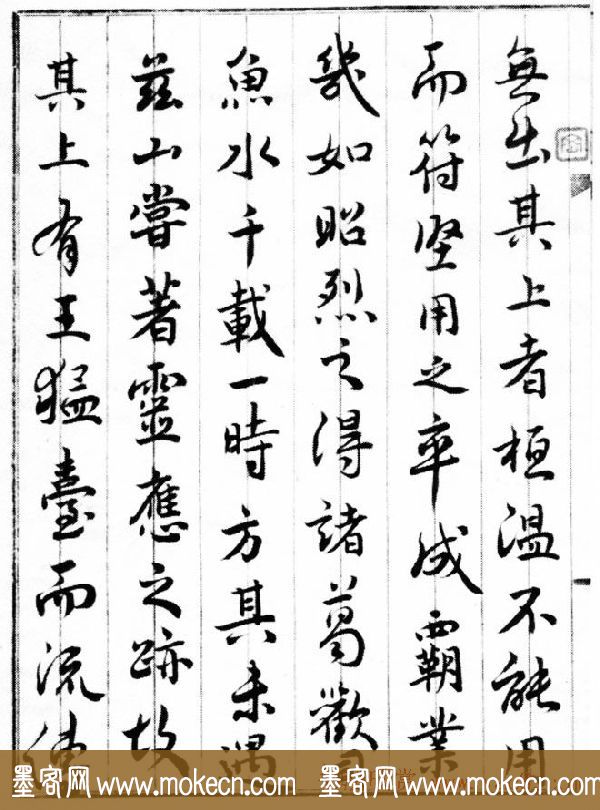 無出其上者桓溫不能用
而符堅用之卒成霸業
幾如昭烈之得諸葛歡
魚水千載一時方其未遇
茲山嘗著靈應之跡故
其上有王猛臺而流
墨客网 www.mokecn.com 墨客网 www.mokecn.com